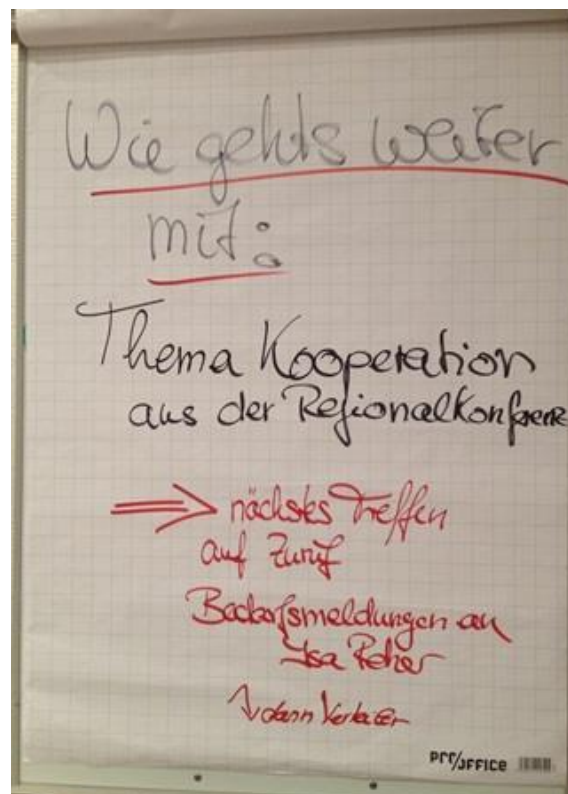 Wie gehts weiter
mit:
Thema Kooperation
aus der Regionalkonferenz
⇒ nächstes Treffen
auf Zuruf
Bedarfsmeldungen an
Isa
↓ dann
pro/office